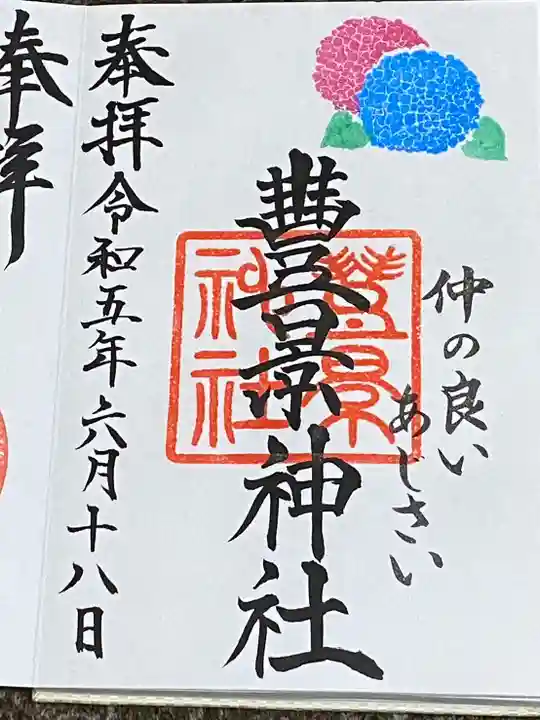 仲の良い
あじさい
豊景神社
豊景神社
奉拝 令和五年六月十八日
奉拝